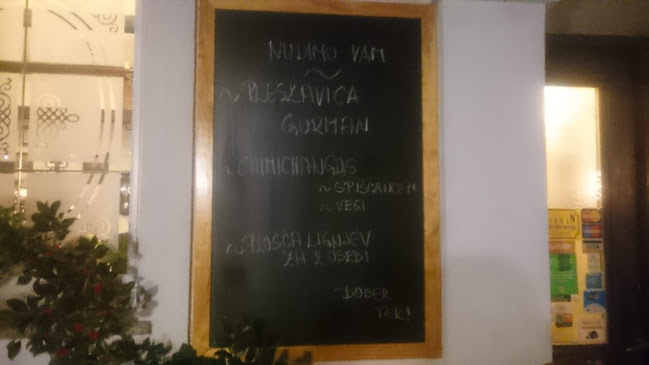 NUDIMO VAM
~ PLESKAVICA
GURMAN
~ CHIMICHANGAS
~ S PIŠČANCEM
~ VEGI
~ PLOŠČA LIGNJEV
ZA 2 OSEBI
DOBER
TEK!